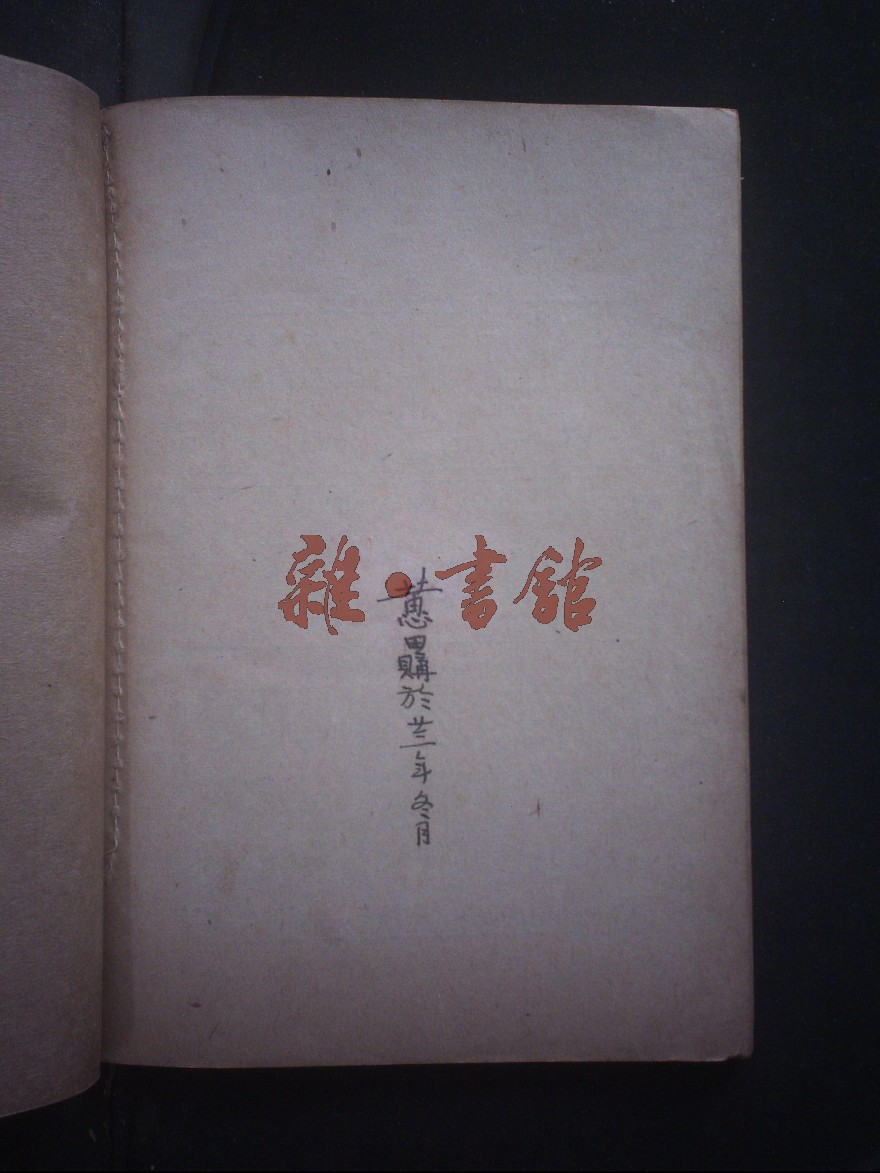 雜·書館
蕙田購於廿三年冬月